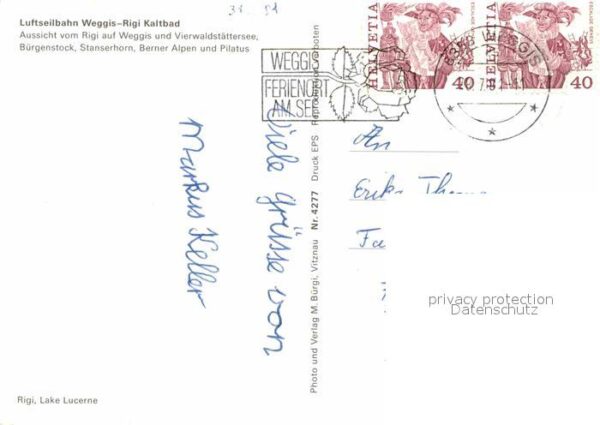 Luftseilbahn Weggis–Rigi Kaltbad
Aussicht vom Rigi auf Weggis und Vierwaldstättersee,
Bürgenstock, Stanserhorn, Berner Alpen und Pilatus
WEGGIS
FERIENORT
AM SEE
HELVETIA
40
ESCALADE GENÈVE
HELVETIA
40
ESCALADE GENÈVE
WEGGIS
Viele Grüsse von
Markus Keller
Photo und Verlag M. Bürgi, Vitznau Nr. 4277 Druck EPS Reproduktion verboten
An
Fa
privacy protection
Datenschutz
Rigi, Lake Lucerne